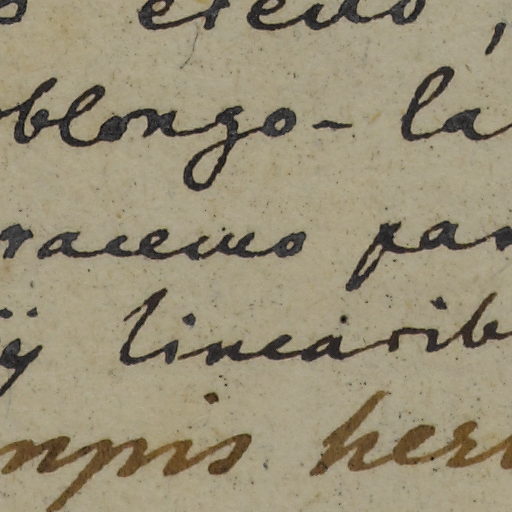 erecto,
oblongo-la
racemo pau
ij linearib
mpis her